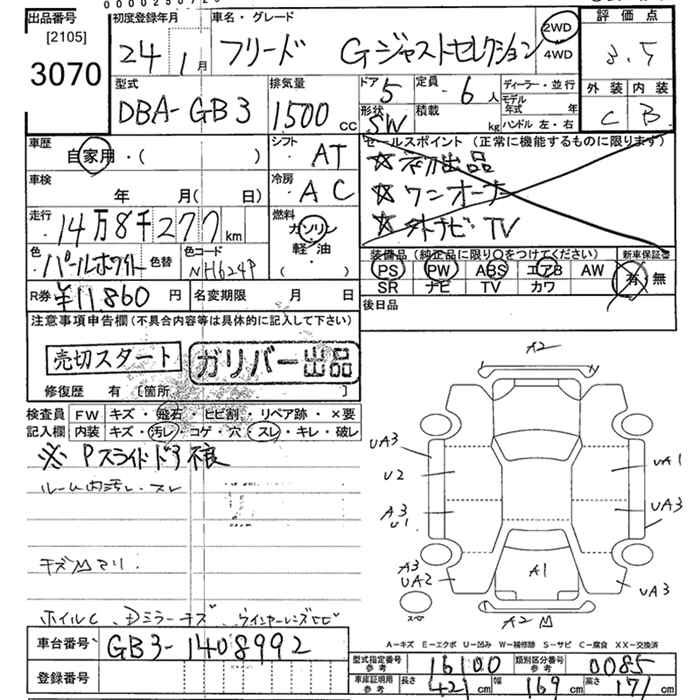 出品番号
[2105]
3070
初度登録年月
24 1月
車名・グレード
フリード Gジャストセレクション
2WD
4WD
評価点
3.5
型式
DBA-GB3
排気量
1500 CC
ドア 5
形状 SW
定員 6人
積載 kg
ディーラー・並行
モデル年式 年
ハンドル 左・右
外装 内装
C B
車歴
自家用・( )
シフト AT
セールスポイント (正常に機能するものに限ります)
☆初出品
☆ワンオーナー
☆外ナビ・TV
車検
年 月( 日)
冷房 AC
走行
14万8千277km
燃料
ガソリン
軽・油
・( )
色
パールホワイト
色替
色コード
NH624P
装備品 (純正品に限り○をつけてください)
PS PW ABS エアB AW
SR ナビ TV カワ
新車保証書
有 無
R券 ¥11,860円
名変期限 月 日
後日品
注意事項申告欄 (不具合内容等は具体的に記入して下さい)
売切スタート
ガリバー出品
修復歴 有〔箇所 〕
検査員 FW キズ・飛石・ヒビ割・リペア跡・×要
記入欄 内装 キズ・汚レ・コゲ・穴・スレ・キレ・破レ
※ Pスライドドア不良
ルーム内汚レ・スレ
キズ凹マリ
ホイルC、Dミラーキズ ウインカーレンズヒビ
A2
UA3
U2
A3
U1
A3
UA2
スペア
UA1
UA3
UA3
A1
A2 凹
A-キズ E-エクボ U-凹み W-補修跡 S-サビ C-腐食 XX-交換済
車台番号 GB3-1408992
登録番号
型式指定番号 参考 16100
類別区分番号 参考 0085
車庫証明用 参考 長さ 421cm 幅 169cm 高さ 171cm